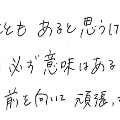 ともあると思うけ
必ず意味はある
前を向いて頑張